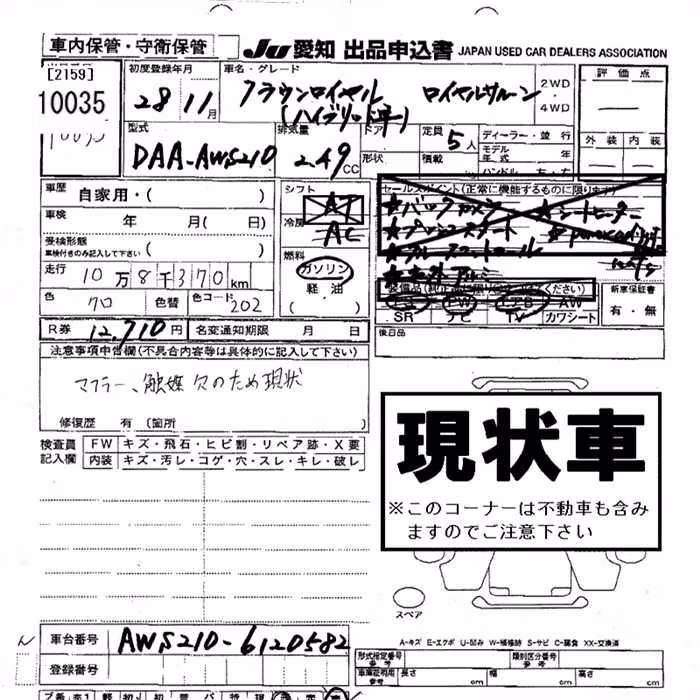 車内保管・守衛保管
JU 愛知 出品申込書 JAPAN USED CAR DEALERS ASSOCIATION
[2159]
10035
初度登録年月
28 11月
車名・グレード
クラウンロイヤル ロイヤルサルーン
(ハイブリッド車)
2WD
4WD
評価点
外装 内装
型式
DAA-AWS210
排気量
2.49cc
ドア
形状
定員 5人
積載
ディーラー・並行
モデル年式 年
ハンドル 左・右
車歴 自家用・( )
車検 年 月( 日)
受検形態
車検付きのみ記入して下さい
走行 10万8千370km
色 クロ 色替 色コード 202
R券 12,710円 名変通知期限 月 日
シフト
AT
冷房
AC
燃料
ガソリン
軽油
( )
セールスポイント(正常に機能するものに限ります)
★バックカメラ ★シートヒーター
★プッシュスタート
★クルーズコントロール
PW AW
SR ナビ TV カワシート
新車保証書
有・無
後日品
注意事項申告欄(不具合内容等は具体的に記入して下さい)
マフラー、触媒欠のため現状
修復歴 有 〔箇所 〕
検査員記入欄
FW キズ・飛石・ヒビ割・リペア跡・X要
内装 キズ・汚レ・コゲ・穴・スレ・キレ・破レ
現状車
※このコーナーは不動車も含み
ますのでご注意下さい
スペア
A-キズ E-エクボ U-凹み W-補修跡 S-サビ C-腐食 XX-交換済
車台番号 AWS210-6120582
登録番号
形式指定番号 参考
類別区分番号 参考
車庫証明用 参考 長さ cm 幅 cm 高さ cm